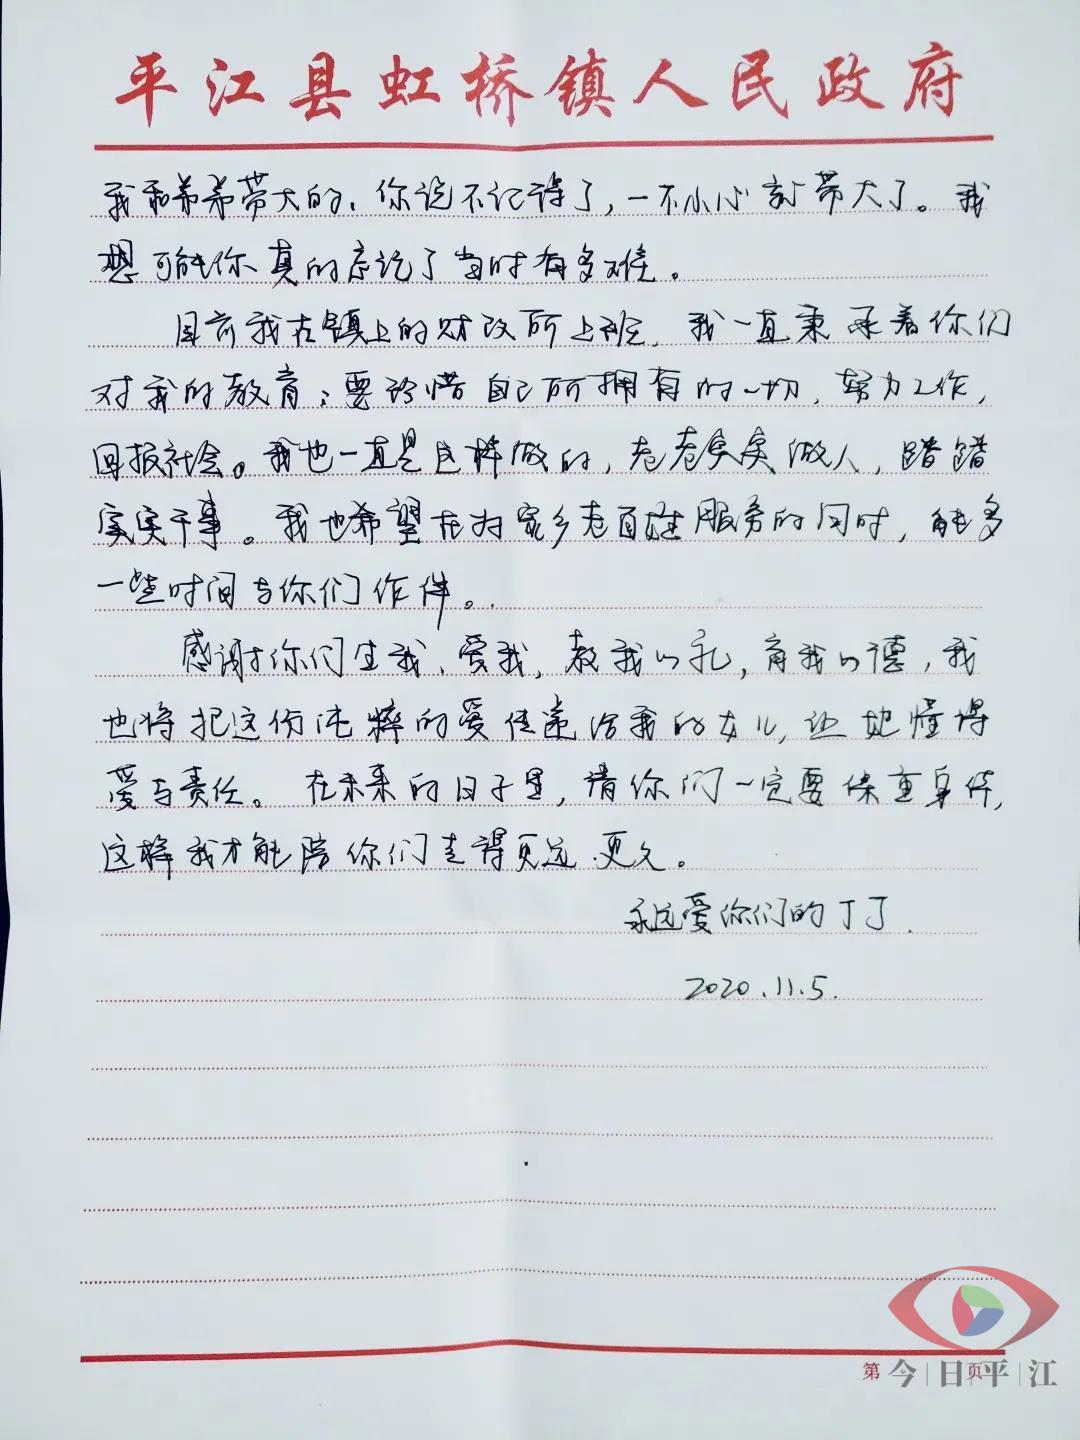 平江县虹桥镇人民政府
我和弟弟带大的，你说不记得了，一不小心就带大了。我
想可能你真的忘记了当时有多难。
目前我在镇上的财政所上班，我一直秉承着你们
对我的教育：要珍惜自己所拥有的一切，努力工作，
回报社会。我也一直是这样做的，老老实实做人，踏踏
实实干事。我也希望在为家乡老百姓服务的同时，能多
一些时间与你们作伴。
感谢你们生我、爱我，教我以礼，育我以德，我
也将把这份纯粹的爱传递给我的女儿，让她懂得
爱与责任。在未来的日子里，请你们一定要保重身体，
这样我才能陪你们走得更远、更久。
永远爱你们的丁丁.
2020.11.5.
第 页
今日平江